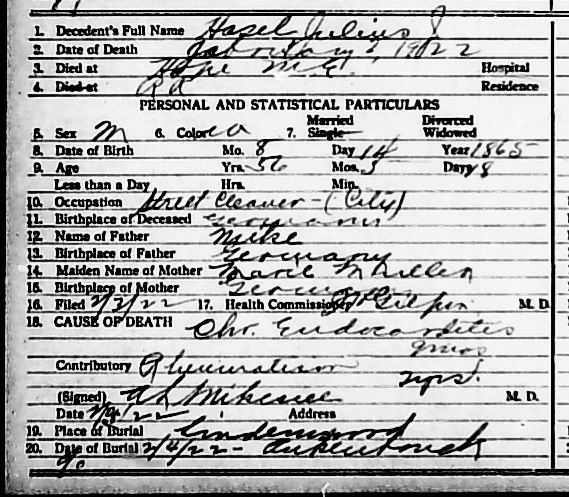 1. Decedent's Full Name Hazel Julius J
2. Date of Death 1922
3. Died at Hospital
4. Died at Residence
PERSONAL AND STATISTICAL PARTICULARS
5. Sex M 6. Color 7. Married Single Divorced Widowed
8. Date of Birth Mo. 8 Day 14 Year 1865
9. Age Yrs. 56 Mos. 5 Days 18
Less than a Day Hrs. Min.
10. Occupation Street Cleaner - (City)
11. Birthplace of Deceased Germany
12. Name of Father Mike
13. Birthplace of Father Germany
14. Maiden Name of Mother Marie
15. Birthplace of Mother Germany
16. Filed 2/3/22 17. Health Commissioner Gilpin M. D.
18. CAUSE OF DEATH Chr. Endocarditis
Contributory Rheumatism
yrs.
(Signed) Mikesell M. D.
Date 22 Address
19. Place of Burial Lindenwood
20. Date of Burial 2/4/22 -